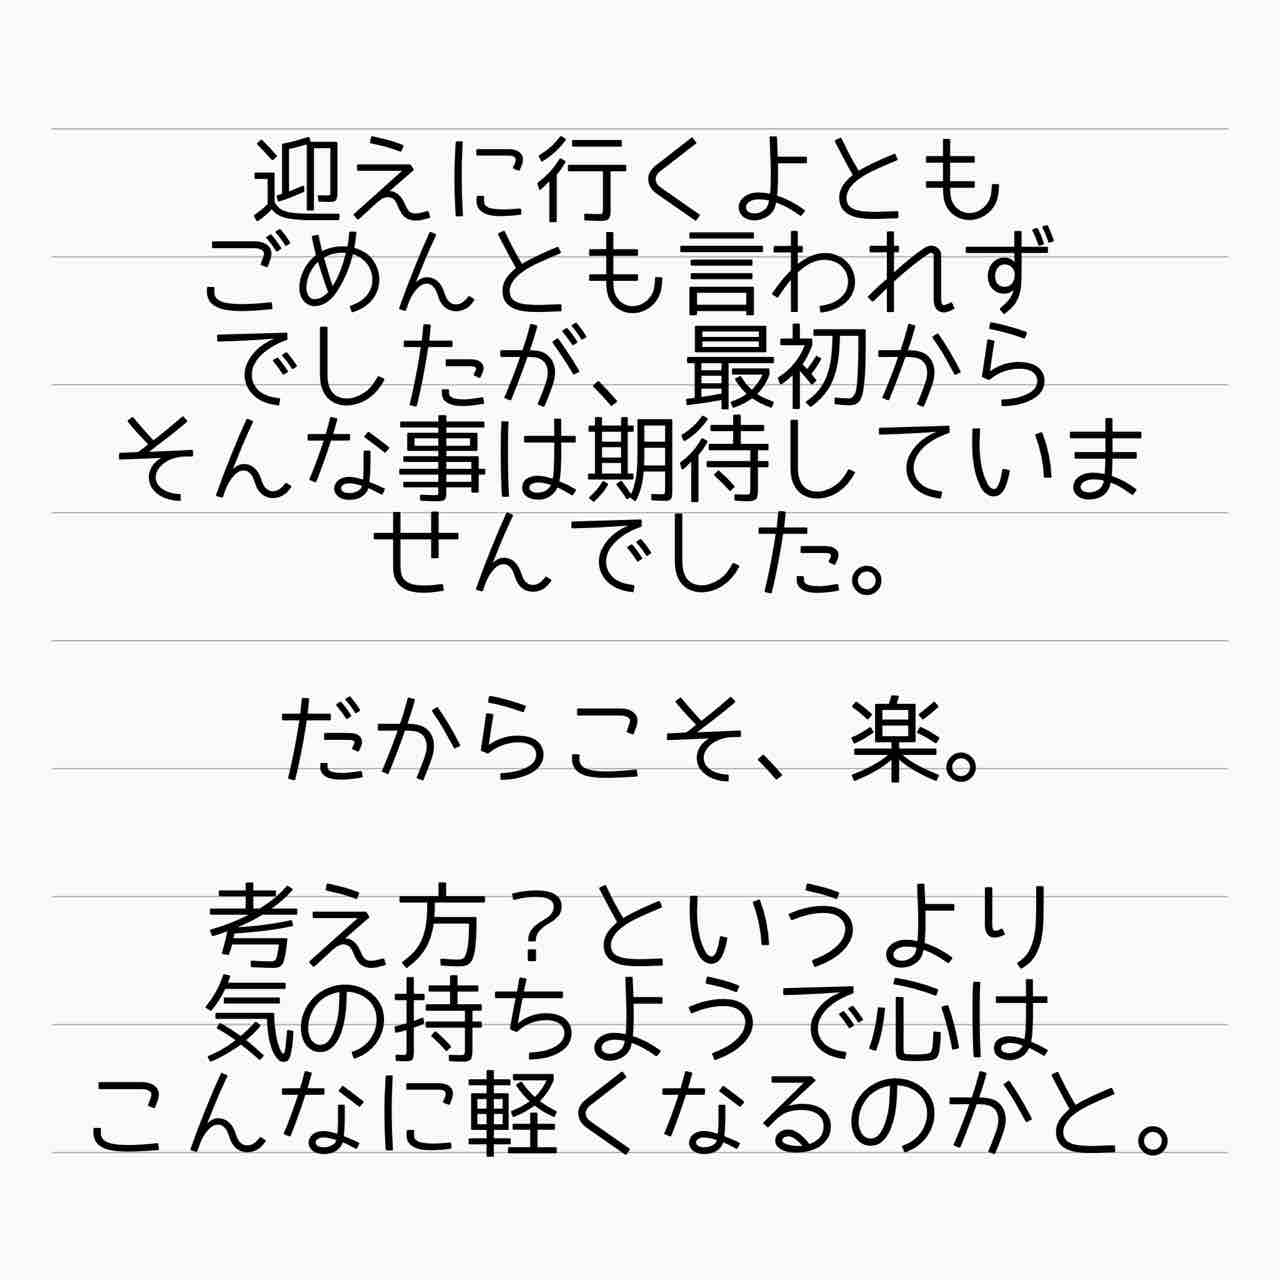 迎えに行くよとも
ごめんとも言われず
でしたが、最初から
そんな事は期待していま
せんでした。
だからこそ、楽。
考え方？というより
気の持ちようで心は
こんなに軽くなるのかと。